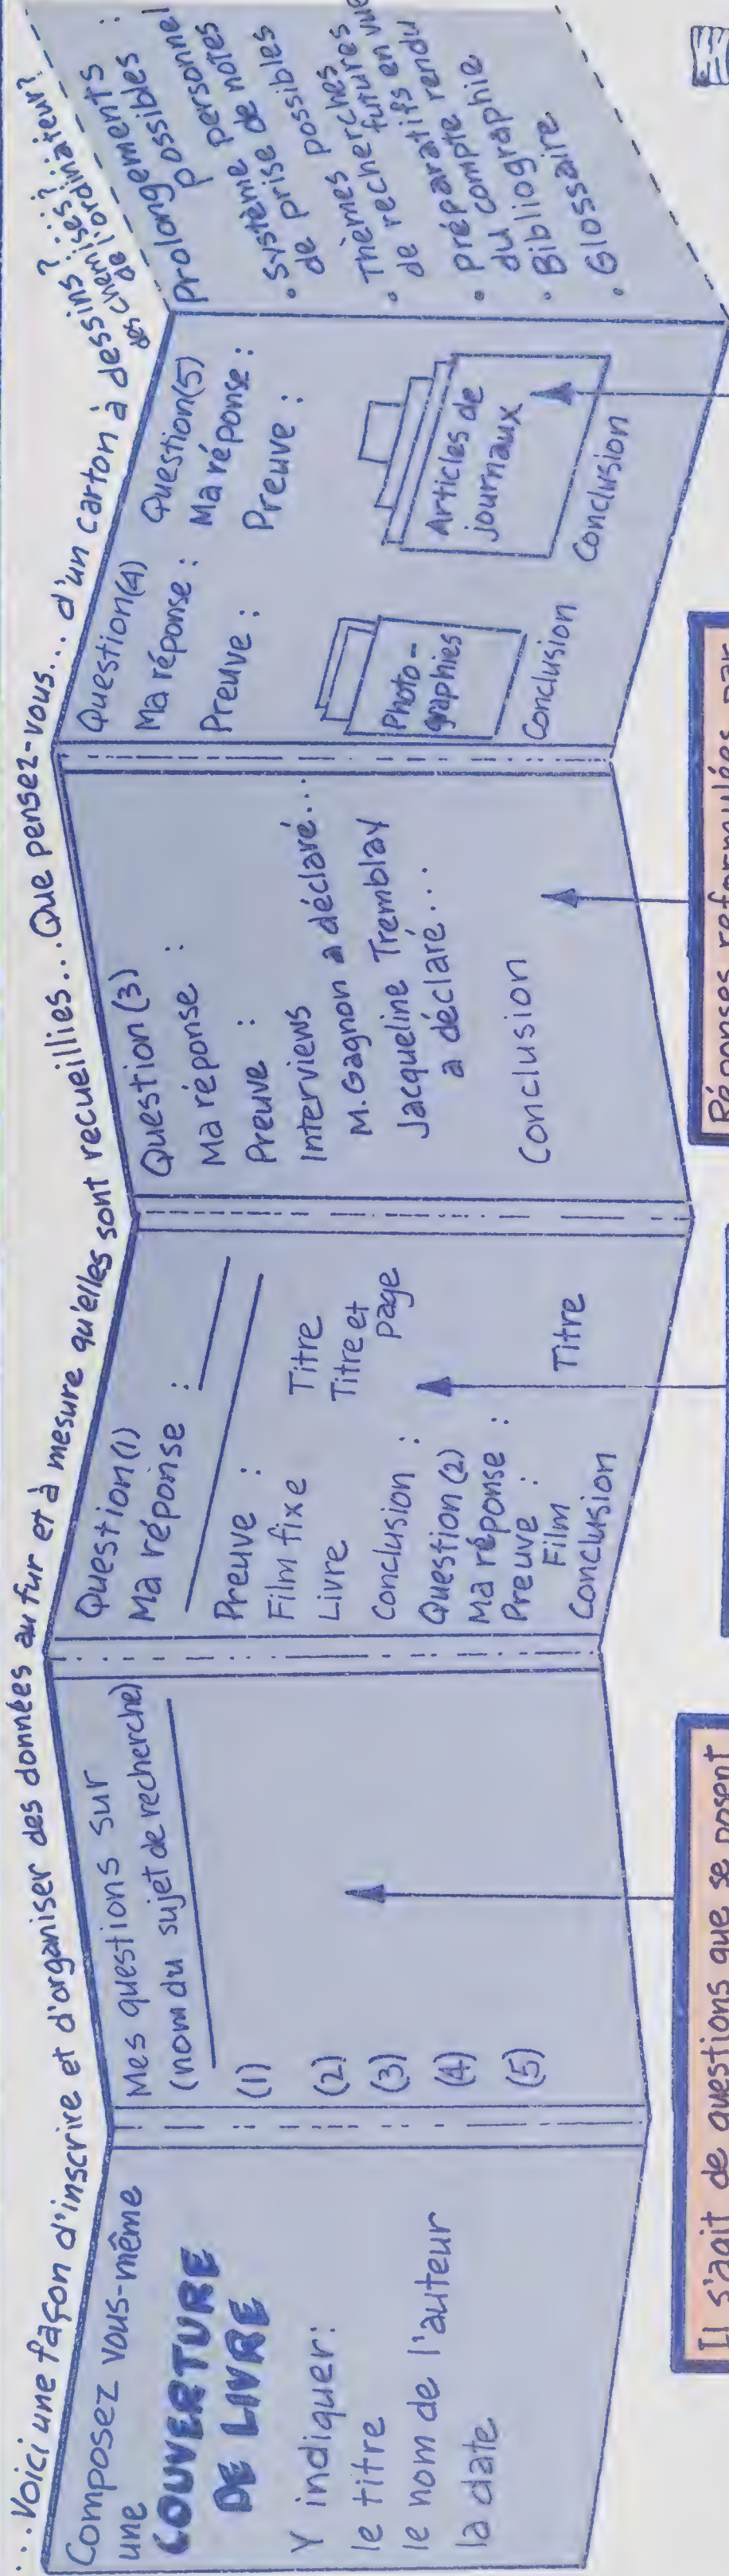 ...Voici une façon d'inscrire et d'organiser des données au fur et à mesure qu'elles sont recueillies... Que pensez-vous... d'un carton à dessins?...?...?
des chemises? de l'ordinateur?
Composez vous-même
une
COUVERTURE
DE LIVRE
Y indiquer:
le titre
le nom de l'auteur
la date
Mes questions sur
(nom du sujet de recherche)
(1)
(2)
(3)
(4)
(5)
Question(1)
Ma réponse :
Preuve :
Film fixe Titre
Livre Titre et
page
Conclusion :
Question (2)
Ma réponse :
Preuve :
Film Titre
Conclusion
Question (3)
Ma réponse :
Preuve :
Interviews
M. Gagnon a déclaré...
Jacqueline Tremblay
a déclaré...
Conclusion
Question(4)
Ma réponse :
Preuve :
Photo-
graphies
Conclusion
Question(5)
Ma réponse :
Preuve :
Articles de
journaux
Conclusion
Prolongements
possibles :
• Système personnel
de prise de notes
• Thèmes possibles
de recherches
futures
• Préparatifs en vue
du compte rendu
• Bibliographie
• Glossaire
Il s'agit de questions que se posent
Réponses reformulées par